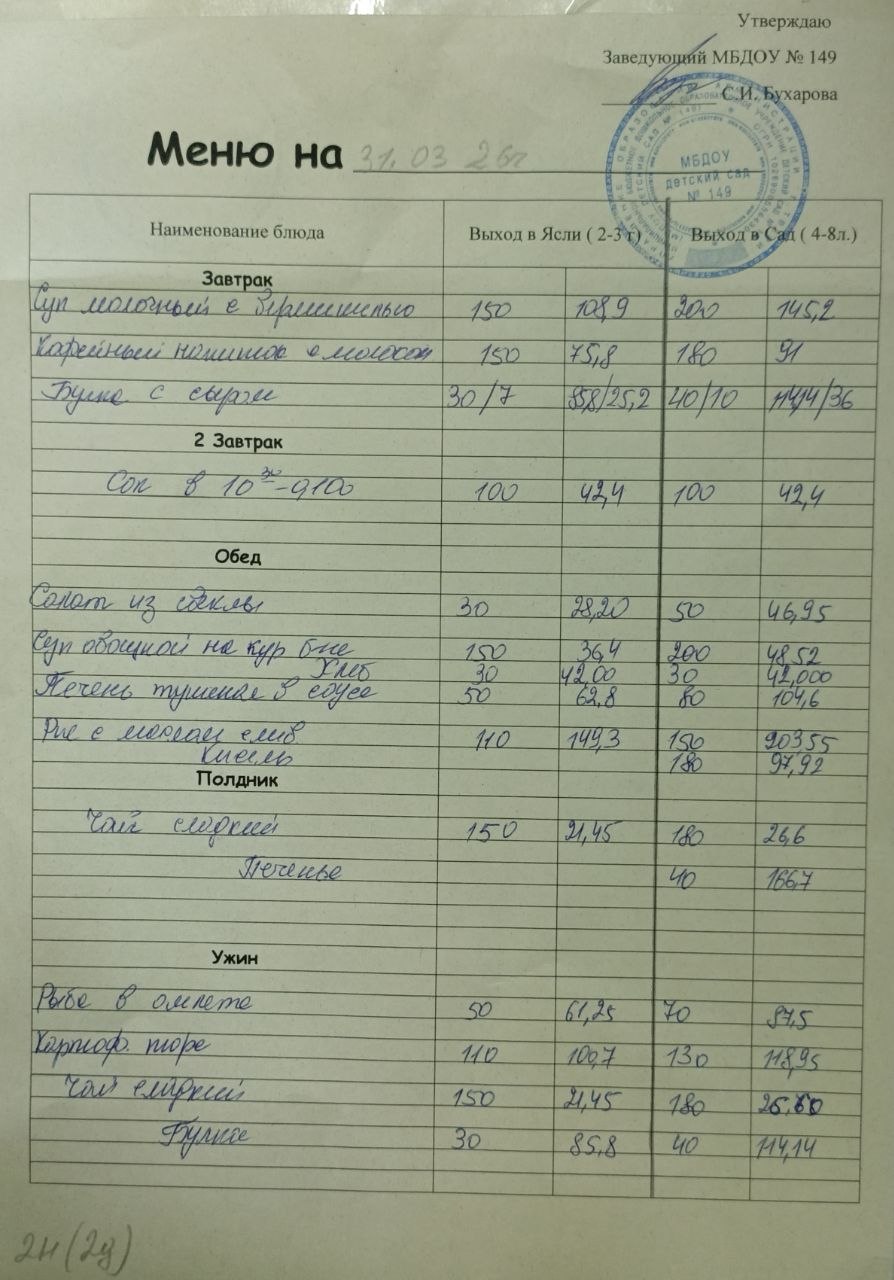 Утверждаю
Заведующий МБДОУ № 149
С.И. Бухарова
МБДОУ
детский сад
№ 149
Меню на 31.03 26г
Наименование блюда Выход в Ясли ( 2-3 г) Выход в Сад ( 4-8л.)
Завтрак
Суп молочный с вермишелью 150 108,9 200 145,2
Кофейный напиток с молоком 150 75,8 180 91
Булка с сыром 30/7 85,8/25,2 40/10 114,14/36
2 Завтрак
Сок в 10 30 -0,100 100 42,4 100 42,4
Обед
Салат из свеклы 30 28,20 50 46,95
Суп овощной на кур б-не 150 36,4 200 48,52
Хлеб 30 42,00 30 42,000
Печень тушеная в соусе 50 62,8 80 104,6
Рис с маслом слив. 110 149,3 150 203,55
Кисель 180 97,92
Полдник
Чай сладкий 150 21,45 180 26,6
Печенье 40 166,7
Ужин
Рыба в омлете 50 61,25 70 87,5
Картоф. пюре 110 100,7 130 118,95
Чай сладкий 150 21,45 180
Булка 30 85,8 40 114,14
2н(2д)